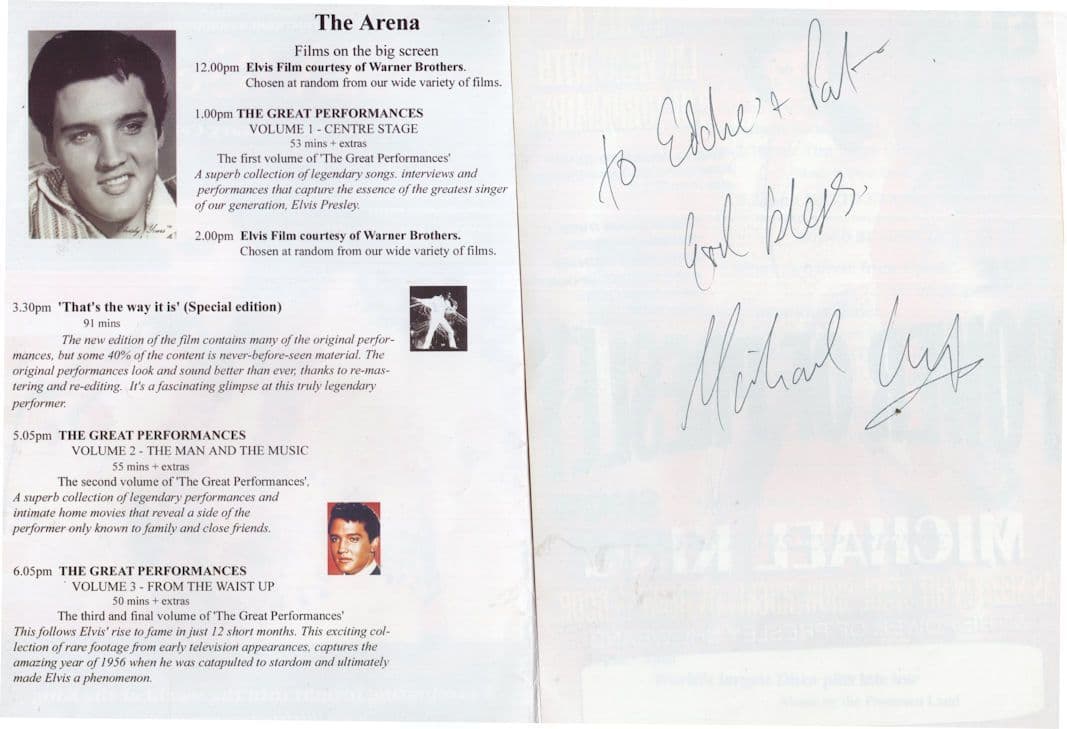 The Arena
Films on the big screen
12.00pm Elvis Film courtesy of Warner Brothers.
Chosen at random from our wide variety of films.
1.00pm THE GREAT PERFORMANCES
VOLUME 1 - CENTRE STAGE
53 mins + extras
The first volume of 'The Great Performances'
A superb collection of legendary songs. interviews and
performances that capture the essence of the greatest singer
of our generation, Elvis Presley.
2.00pm Elvis Film courtesy of Warner Brothers.
Chosen at random from our wide variety of films.
3.30pm 'That's the way it is' (Special edition)
91 mins
The new edition of the film contains many of the original perfor-
mances, but some 40% of the content is never-before-seen material. The
original performances look and sound better than ever, thanks to re-mas-
tering and re-editing. It's a fascinating glimpse at this truly legendary
performer.
5.05pm THE GREAT PERFORMANCES
VOLUME 2 - THE MAN AND THE MUSIC
55 mins + extras
The second volume of 'The Great Performances',
A superb collection of legendary performances and
intimate home movies that reveal a side of the
performer only known to family and close friends.
6.05pm THE GREAT PERFORMANCES
VOLUME 3 - FROM THE WAIST UP
50 mins + extras
The third and final volume of 'The Great Performances'
This follows Elvis' rise to fame in just 12 short months. This exciting col-
lection of rare footage from early television appearances, captures the
amazing year of 1956 when he was catapulted to stardom and ultimately
made Elvis a phenomenon.
to Eddie + Pat
God bless.
Michael